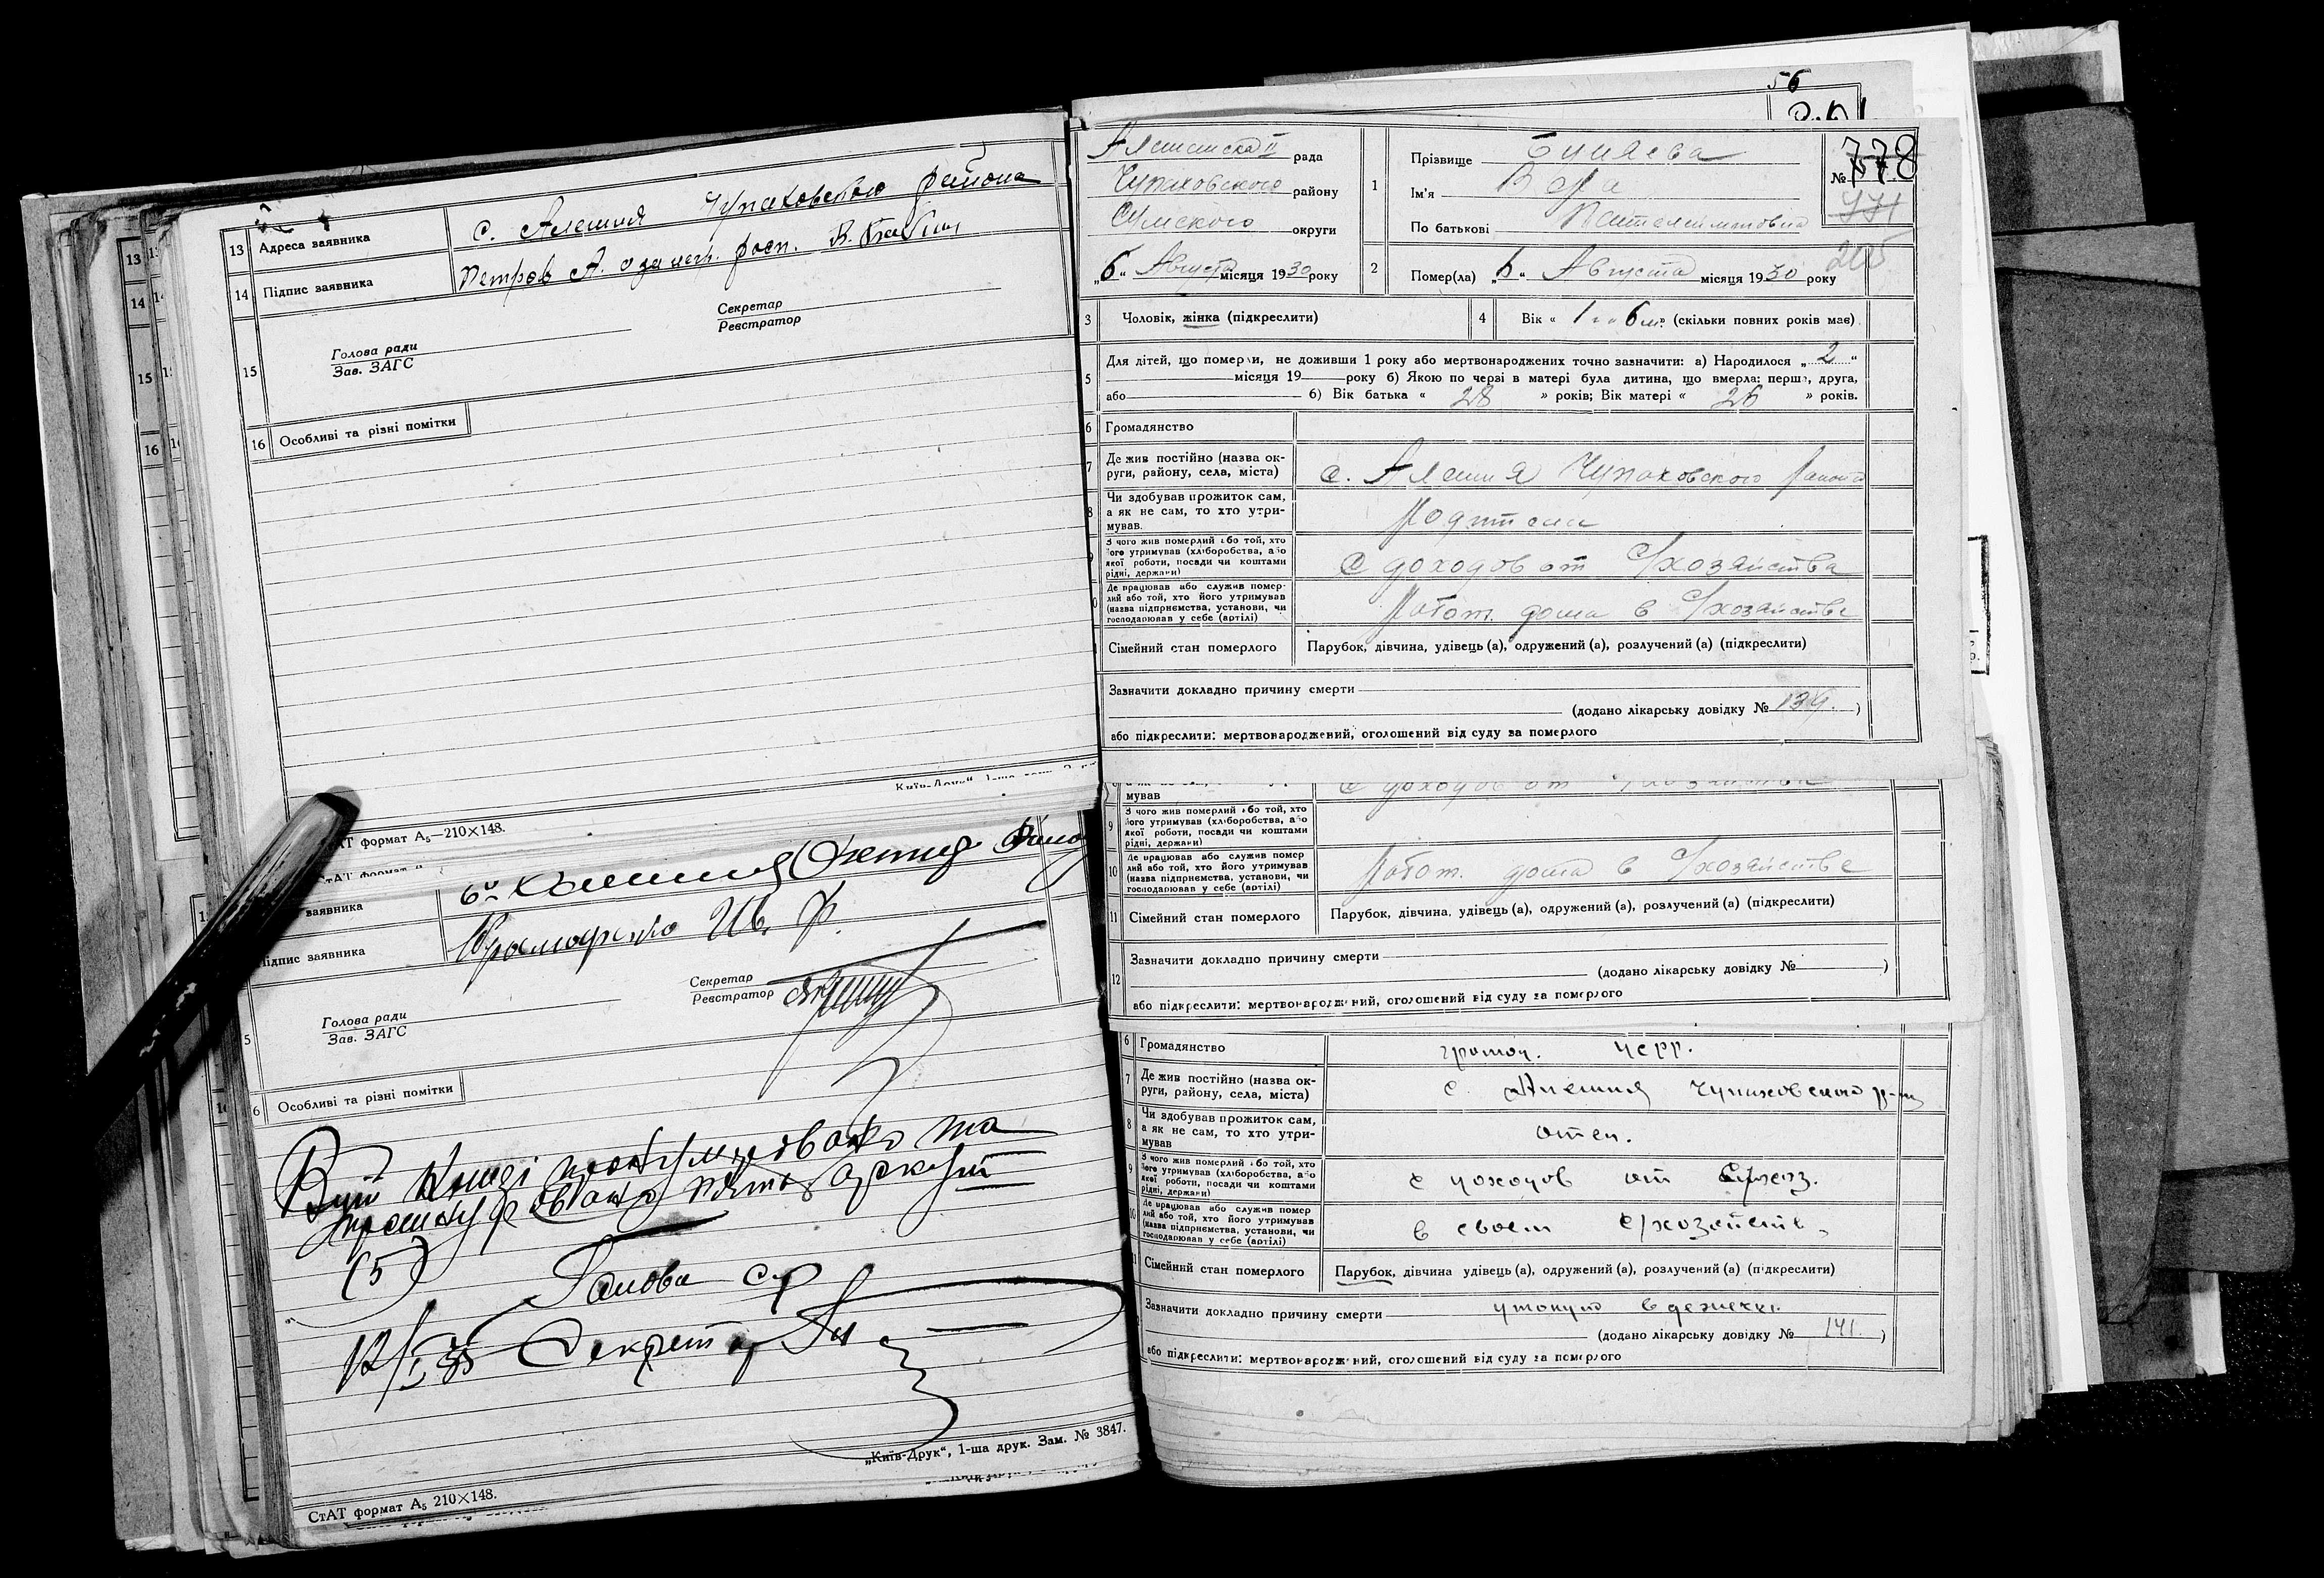 13 Адреса заявника с. Алешня Чупаховского района
14 Підпис заявника Петров А. В. Бабич
15 Голова ради
Зав. ЗАГС
Секретар
Реєстратор
16 Особливі та різні помітки
СтАТ формат А₅—210×148.
заявника
Підпис заявника Ив. Ф.
Секретар
Реєстратор
Голова ради
Зав. ЗАГС
Особливі та різні помітки
В цій книзі пронумеровано та
прошнуровано аркуш
(5)
Голова с/р
Секретар
„Київ-Друк“, 1-ша друк. Зам. № 3847.
СтАТ формат А₅ 210×148.
56
рада
Чупаховского району
Сумского округи
„6“ Августа місяця 1930 року
1 Прізвище Буняева
Ім'я Вера
По батькові Пантелеимоновна
№ 778
771
205
2 Помер(ла) „6“ Августа місяця 1930 року
3 Чоловік, жінка (підкреслити)
4 Вік „1 г. 6 м.“ (скільки повних років має)
5 Для дітей, що померли, не доживши 1 року або мертвонароджених точно зазначити: а) Народилося „2“
місяця 19 року б) Якою по черзі в матері була дитина, що вмерла: перша, друга,
або б) Вік батька « 28 » років; Вік матері « 26 » років.
6 Громадянство
7 Де жив постійно (назва округи, району, села, міста) с. Алешня Чупаховского района
8 Чи здобував прожиток сам, а як не сам, то хто утримував. Родители
9 З чого жив померлий або той, хто його утримував (хліборобства, або якої роботи, посади чи коштами рідні, держави) С доходов от с/хозяйства
Де працював або служив померлий або той, хто його утримував (назва підприємства, установи, чи господарював у себе (артілі) Работ. дома в с/хозяйстве
Сімейний стан померлого Парубок, дівчина, удівець (а), одружений (а), розлучений (а) (підкреслити)
Зазначити докладно причину смерти
(додано лікарську довідку № 139.)
або підкреслити: мертвонароджений, оголошений від суду за померлого
мував
9 З чого жив померлий або той, хто його утримував (хліборобства, або якої роботи, посади чи коштами рідні, держави)
10 Де працював або служив померлий або той, хто його утримував (назва підприємства, установи, чи господарював у себе (артілі) Работ. дома в с/хозяйстве
11 Сімейний стан померлого Парубок, дівчина, удівець (а), одружений (а), розлучений (а) (підкреслити)
12 Зазначити докладно причину смерти
(додано лікарську довідку № )
або підкреслити: мертвонароджений, оголошений від суду за померлого
6 Громадянство громад. УСРР.
7 Де жив постійно (назва округи, району, села, міста) с. Алешня Чупаховского р-на
8 Чи здобував прожиток сам, а як не сам, то хто утримував отец.
9 З чого жив померлий або той, хто його утримував (хліборобства, або якої роботи, посади чи коштами рідні, держави) с доходов от с/хоз.
Де працював або служив померлий або той, хто його утримував (назва підприємства, установи, чи господарював у себе (артілі) в своем с/хозяйств.
Сімейний стан померлого Парубок, дівчина удівець (а), одружений (а), розлучений (а) (підкреслити)
Зазначити докладно причину смерти утонул в
(додано лікарську довідку № 141.)
або підкреслити: мертвонароджений, оголошений від суду за померлого